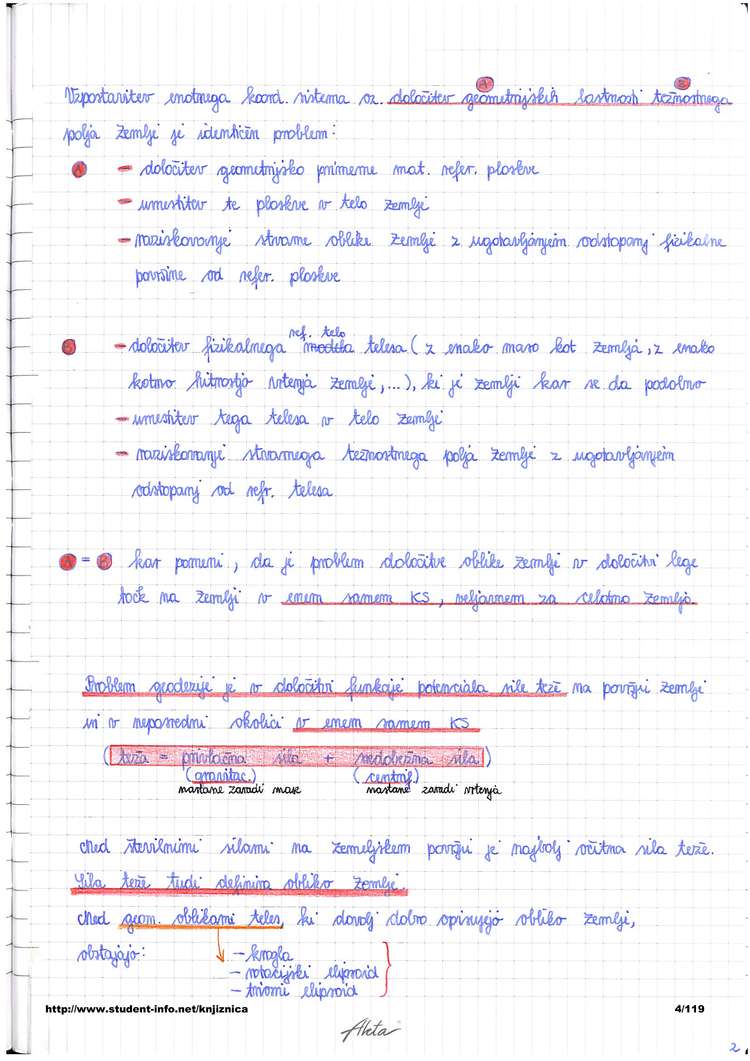 A B
Vzpostavitev enotnega koord. sistema oz. določitev geometrijskih lastnosti težnostnega
polja Zemlje je identičen problem:
A - določitev geometrijsko primerne mat. refer. ploskve
- umestitev te ploskve v telo Zemlje
- raziskovanje stvarne oblike Zemlje z ugotavljanjem odstopanj fizikalne
površine od refer. ploskve
ref. telo
B - določitev fizikalnega modela telesa (z enako maso kot Zemlja, z enako
kotno hitrostjo vrtenja Zemlje,...), ki je Zemlji kar se da podobno
- umestitev tega telesa v telo Zemlje
- raziskovanje stvarnega težnostnega polja Zemlje z ugotavljanjem
odstopanj od refr. telesa
A = B kar pomeni, da je problem določitve oblike Zemlje v določitvi lege
točk na Zemlji v enem samem KS, veljavnem za celotno Zemljo.
Problem geodezije je v določitvi funkcije potenciala sile teže na površju Zemlje
in v neposredni okolici v enem samem KS
(teža = privlačna sila + sredobežna sila)
(gravitac.) (centrif.)
nastane zaradi mase nastane zaradi vrtenja
Med številnimi silami na zemeljskem površju je najbolj očitna sila teže.
Sila teže tudi definira obliko Zemlje.
Med geom. oblikami teles, ki dovolj dobro opisujejo obliko Zemlje,
obstajajo: - krogla
- rotacijski elipsoid
- triosni elipsoid
http://www.student-info.net/knjiznica 4/119
2